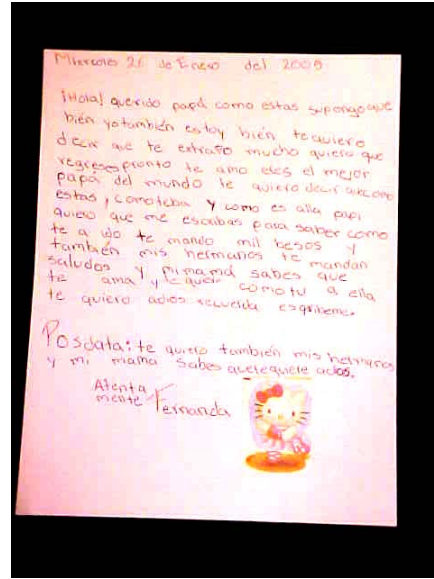 Miercoles 26 de Enero del 2005
¡Hola! querido papá como estas supongo que
bién yo también estoy bién te quiero
decir que te extraño mucho quiero que
regreses pronto te amo eres el mejor
papá del mundo te quiero decir que como
estas, como te ba y como es alla papi
quiero que me escribas para saber como
te a ido te mando mil besos y
también mis hermanos te mandan
saludos y mi mamá sabes que
te ama y te quiere como tu a ella
te quiero adios recuerda esqribeme.
Posdata: te quiero también mis hermanos
y mi mamá sabes que te quiere adios.
Atenta
mente Fernanda